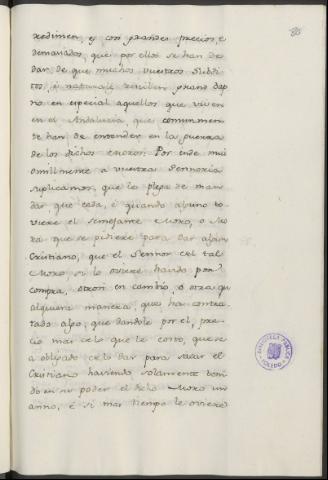 80
redimen, es con grandes precios, e
demasiados, que por ellos se han de
dar de que muchos vuestros Subdi
tos, e naturales reciben grand dap
no en especial aquellos que viven
en el Andalucia, que comunmen
te han de entender en la guerra
de los dichos moros. Por ende mui
omillmente a vuestra Sennoria
suplicamos, que le plega de man
dar que cada, e quando alguno to
viere el semejante Moro, o Mo
ra que se pidiere para dar algun
Cristiano, que el Sennor del tal
Moro si lo oviere havido por
compra, otron en cambio, o otra qu
alquiera manera, que ha contra
tado algo, que dandole por el, pre
cio mas de lo que le costo, que se
a obligado de lo dar para sacar el
Cristiano haviendo solamente teni
do en su poder el dicho Moro un
anno, e si mas tiempo le oviere
BIBLIOTECA PUBLICA
TOLEDO